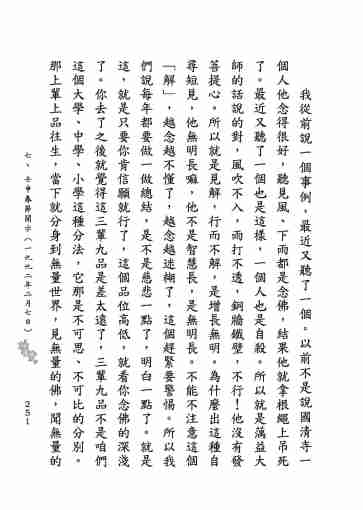 我從前說一個事例，最近又聽了一個。以前不是說國清寺一
個人他念得很好，聽見風、下雨都是念佛，結果他就拿根繩上吊死
了。最近又聽了一個也是這樣，一個人也是自殺。所以就是蕅益大
師的話說的對，風吹不入，雨打不透，銅牆鐵壁，不行！他沒有發
菩提心。所以就是見解，行而不解，是增長無明。為什麼出這種自
尋短見，他無明長嘛，他不是智慧長，是無明長。不能不注意這個
「解」，越念越不懂了，越念越迷糊了，這個趕緊要警惕。所以我
們說每年都要做一做總結，是不是慈悲一點了，明白一點了。就是
這，就是只要你肯信願就行了，這個品位高低，就看你念佛的深淺
了。你去了之後就覺得這三輩九品是差太遠了，三輩九品不是咱們
這個大學、中學、小學這種分法，它那是不可思、不可比的分別。
那上輩上品往生，當下就分身到無量世界，見無量的佛，聞無量的
七、壬申春節開示（一九九二年二月七日）
251